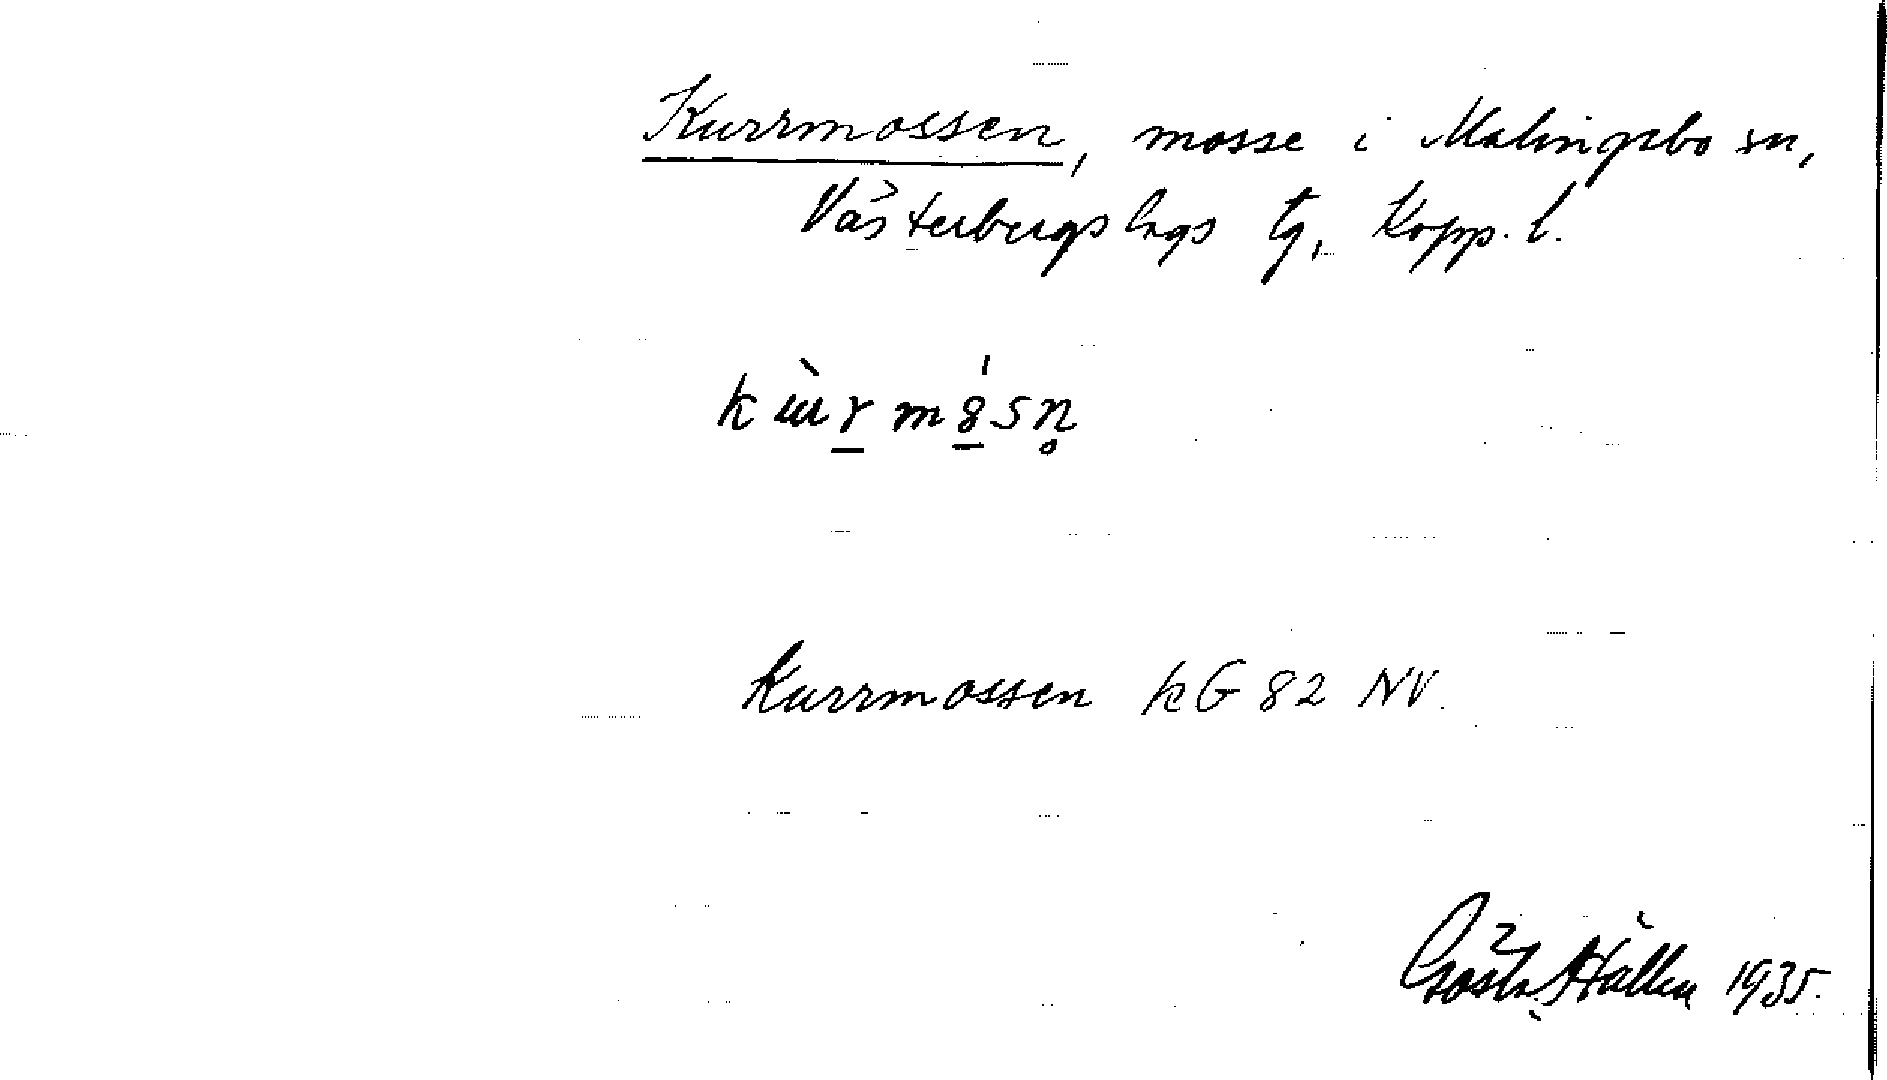 Kurrmossen, mosse i Malingsbo sn,
Västerbergslags tg, Kopp. l.
kùrmɞ́sn̥
Kurrmossen kG 82 NV.
Gösta Hallén 1935.